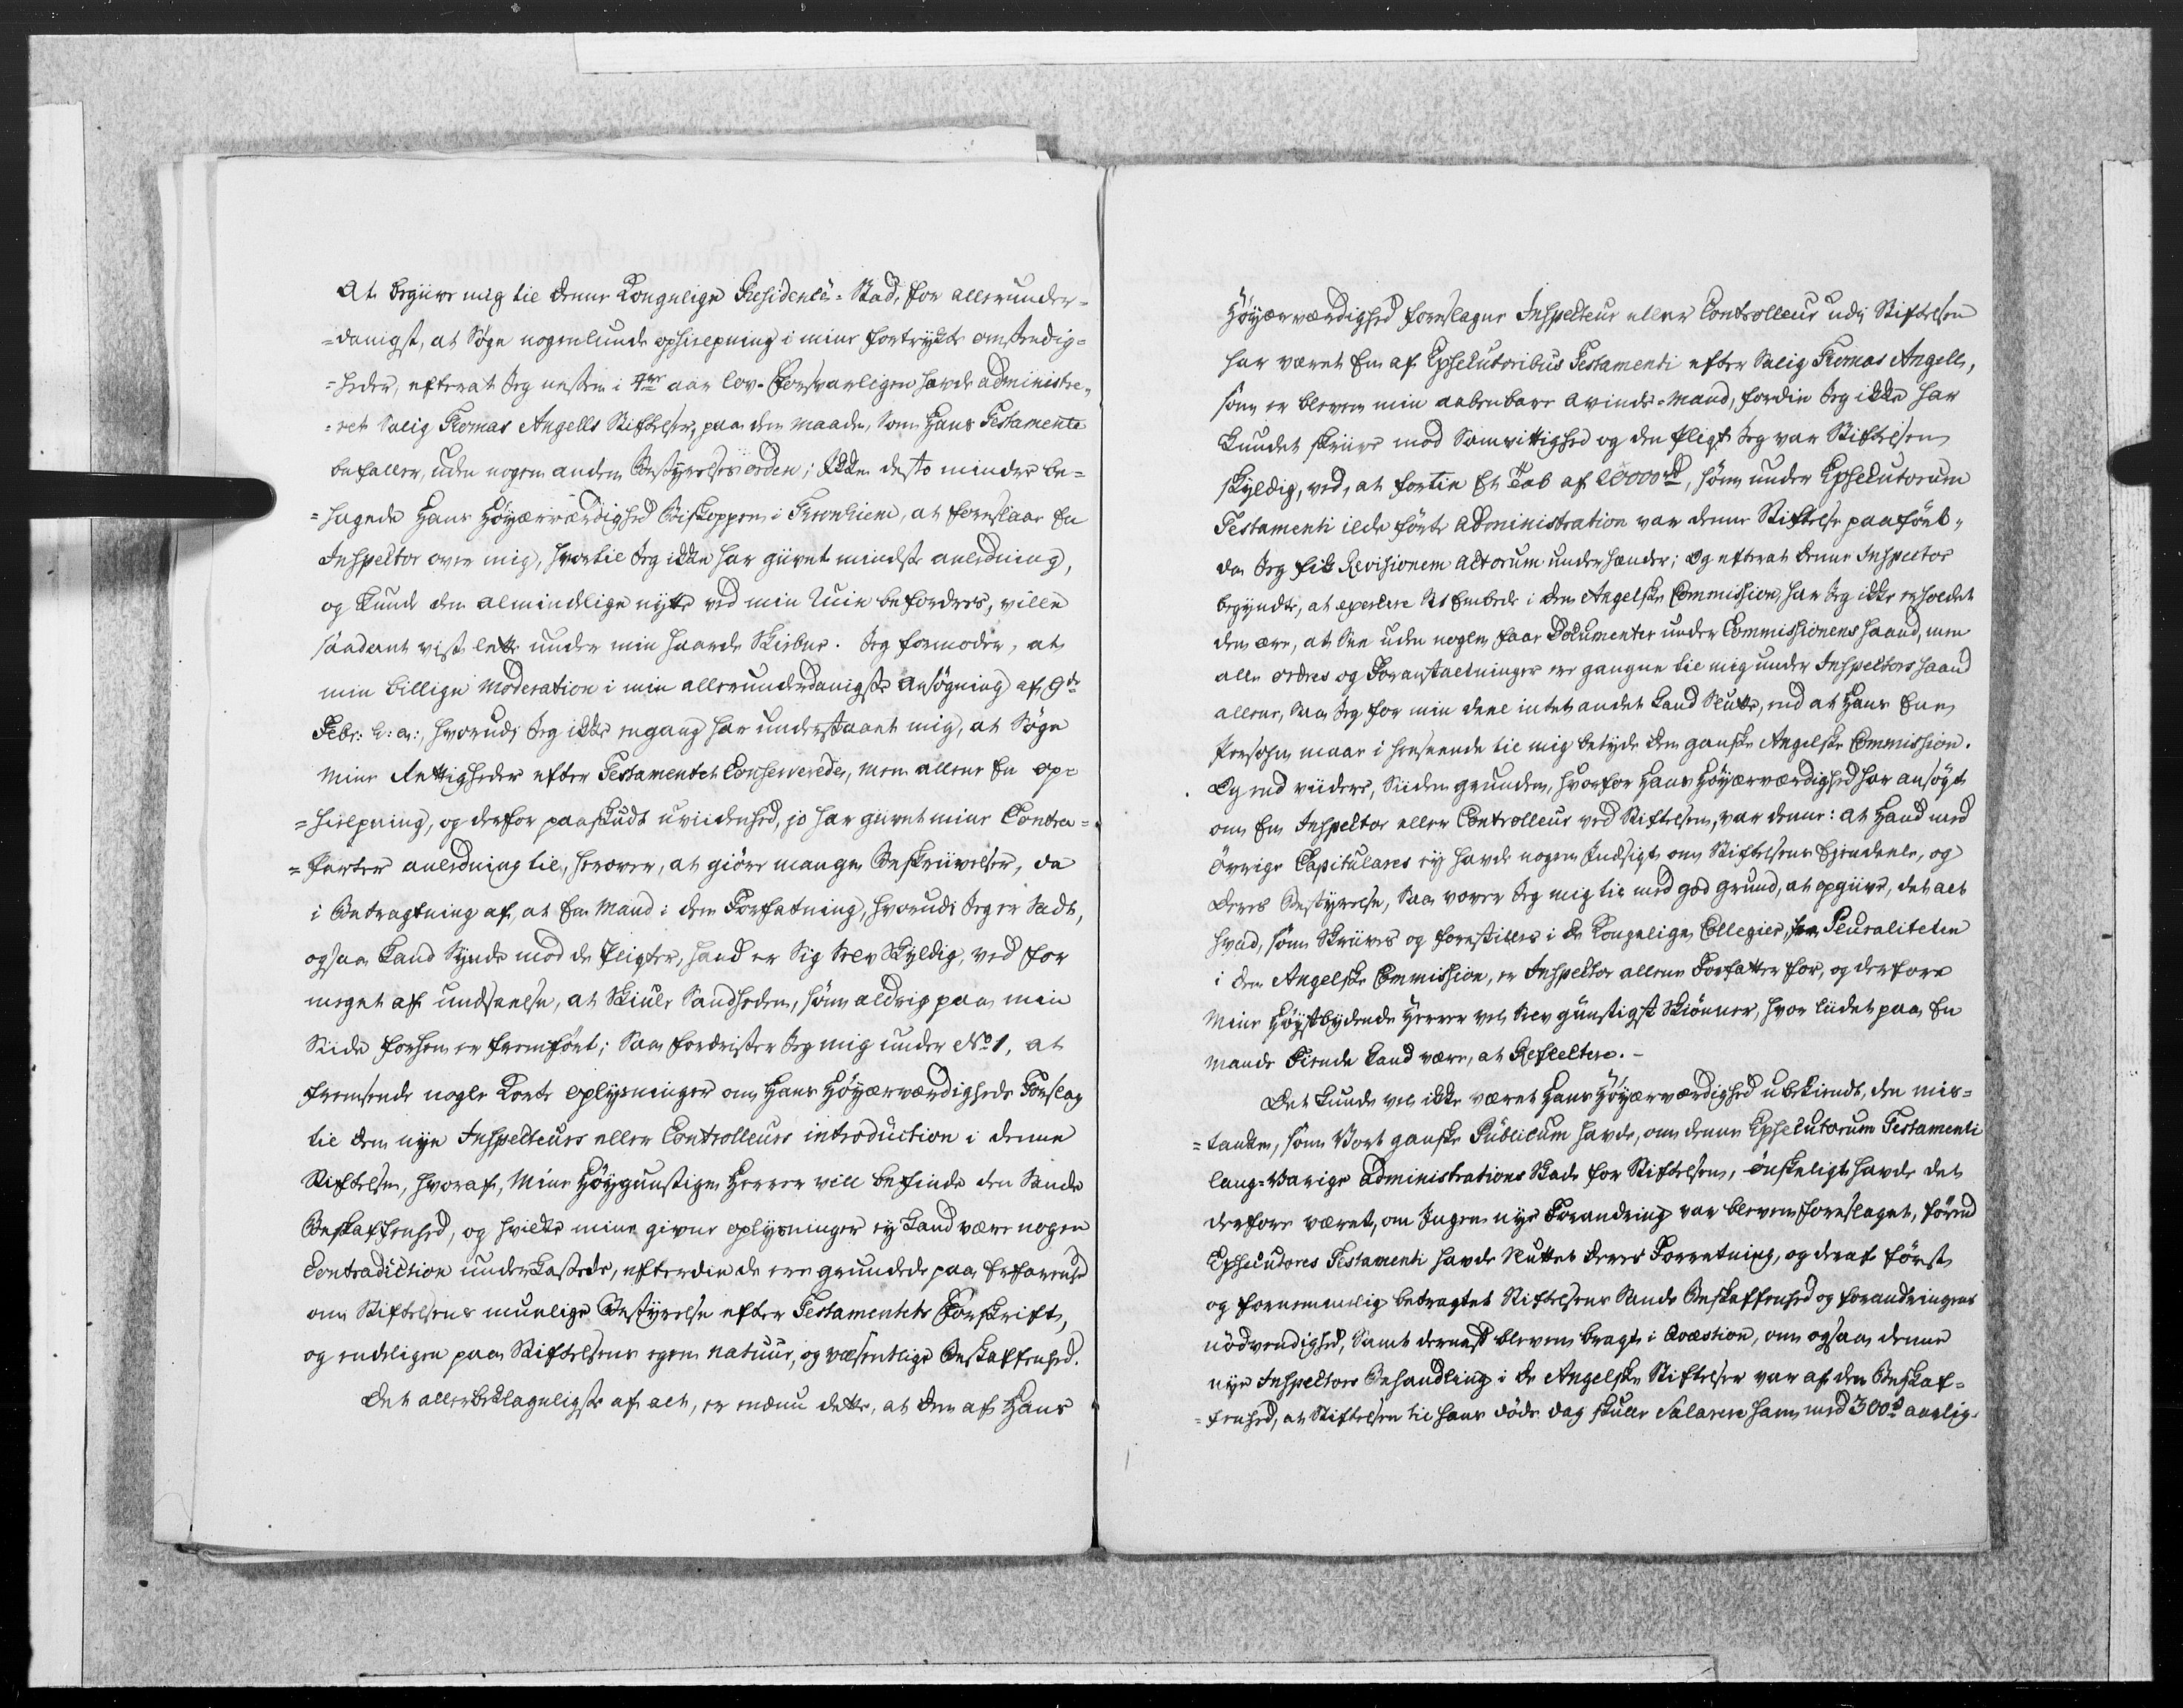 At begive mig til denne Kongelige Residence-Stad, for allerunder-
=danigst, at Søge nogenlunde ophielpning i mine fortrykte omstendig-
=heder, efterat Jeg nesten i 4re aar lov-forsvarligen havde administre-
=ret Salig Thomas Angells Stiftelser, paa den Maade, som Hans Testamente
befaller, uden nogen anden Bestyrelses orden; Ikke desto minder be-
=hagede Hans Høyærværdighed Biskoppen i Tronhiem, at foreslaae En
Inspector over mig, hvortil Jeg ikke har givet mindste anledning,
og kunde den almindelige nytte ved min Ruin befordres, ville
saadant vist lette under min haarde Skiebne. Jeg formoder, at
min billige Moderation i min allerunderdanigste Ansøgning af 9de
Febr: h: a:, hvorudi Jeg ikke engang har understaaet mig, at Søge
mine Rettigheder efter Testamentet Conserverede, men allene En op-
=hielpning, og derfor paaskudt uviidenhed, jo har givet mine Contra-
=Parter anledning til, herover, at giøre mange Beskrivelser, da
i Betragtning af, at En Mand i den Forfatning, hvorudi Jeg er Sadt,
ogsaa kand Synde mod de Pligter, hand er Sig Selv Skyldig, ved for
meget af undseelse, at Skiule Sandheden, som aldrig paa min
Siide forhen er fremført; Saa fordrister Jeg mig under No 1, at
fremsende nogle korte oplysninger om Hans Høyærværdigheds Forslag
til den nye Inspecteurs eller Controlleurs introduction i denne
Stiftelse, hvoraf, Mine Høygunstige Herrer vill befinde den Sande
Beskaffenhed, og hvilke mine givne oplysninger ey kand være nogen
Contradiction underkastede, efterdie de ere grundede paa Erfarenhed
om Stiftelsens muelige Bestyrelse efter Testamentets Forskrift,
og endeligen paa Stiftelsens egen natuur, og væsentlige Beskaffenhed.
Det allerbeklageligste af alt, er endnu dette, at den af Hans
Høyærværdighed foreslagne Inspecteur eller Controlleur udi Stiftelsen
har været En af Executoribus Testamenti efter Salig Thomas Angell,
som er bleven min aabenbare Avinds-Mand, fordie Jeg ikke har
kundet skrive mod Samvittighed og den Pligt Jeg var Stiftelsen
skyldig, ved, at fortie Et Tab af 20000 rd, som under Executorum
Testamenti ilde førte Administration var denne Stiftelse paaført,
da Jeg fik Revisionem Actorum under hænder; Og efterat denne Inspector
begyndte, at exercere Sit Embede i den Angelske Commission, har Jeg ikke erholdet
den ære, at See uden nogle faae Documenter under Commissionens haand, men
alle ordres og Foranstaltninger ere gangne til mig under Inspectors haand
allene, Saa Jeg for min deel intet andet kand Slutte, end at Hans Een
Persohn maae i henseende til mig betyde den ganske Angelske Commission.
Og end viidere, Siiden grunden, hvorfor Hans Høyærværdighed har ansøgt
om En Inspector eller Controlleur ved Stiftelsen, var denne: at Hand med
øvrige Capitulares ey havde nogen Indsigt om Stiftelsens Ejendeele, og
deres Bestyrelse, Saa vover Jeg mig til med god grund, at opgive, det alt
hvad, som Skrives og forestilles i de Kongelige Collegier, fra Pluraliteten
i den Angelske Commission, er Inspector allene Forfatter for, og derfore
Mine Høystbydende Herrer vel Selv günstigst Skiønner, hvor liidet paa En
mands Fiende kand være, at Reflectere.-
Det kunde vel ikke været Hans Høyærværdighed ubekiendt, den mis-
=tanke, som Vort ganske Püblicum havde, om denne Executorum Testamenti
lang-varige Administrations Skade for Stiftelsen, ønskeligt havde det
derfore været, om Ingen nye Forandring var bleven foreslaget, førend
Executores Testamenti havde Sluttet deres Forretning, og deraf først
og fornemmelig betragtet Stiftelsens Sande Beskaffenhed og forandringens
nødvendighed, Samt dernest bleven bragt i Qvæstion, om ogsaa denne
nye Inspectors Behandling i de Angelske Stiftelser var af den Beskaf-
=fenhed, at Stiftelsen til hans døds dag skulle Salarere ham med 300 rd aarlig.